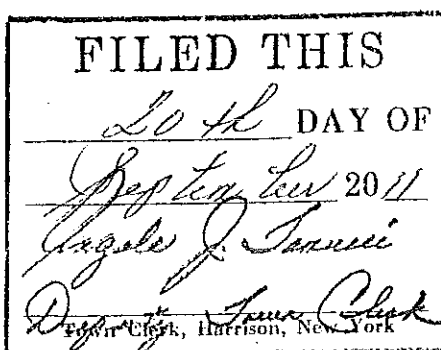 FILED THIS
20th DAY OF
September 2011
J.
Deputy Town Clerk
Town Clerk, Harrison, New York